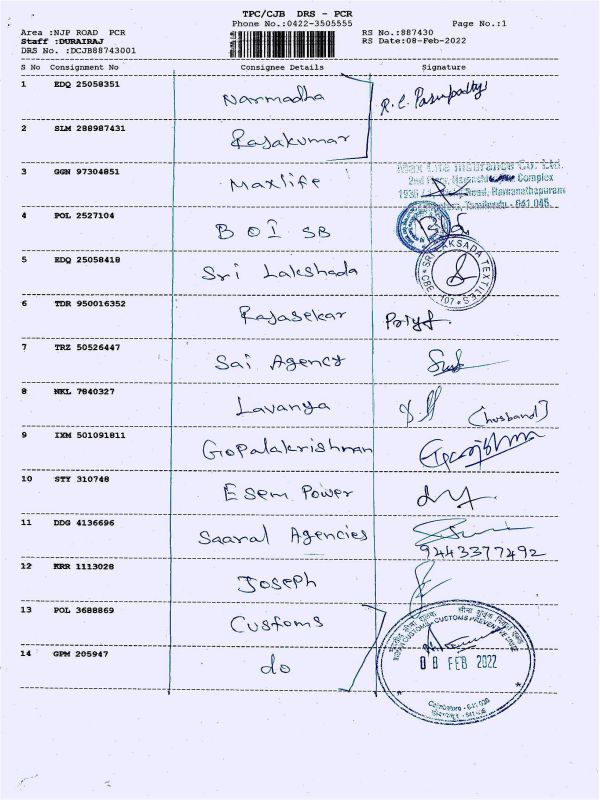 TPC/CJB DRS - PCR
Phone No.:0422-3505555 Page No.:1
Area :NJP ROAD PCR RS No.:887430
Staff :DURAIRAJ RS Date:08-Feb-2022
DRS No. :DCJB88743001
S No Consignment No Consignee Details Signature
1 EDQ 25058351 Narmadha R. C. Pasupathy
2 SLM 288987431 Rajakumar
3 GGN 97304851 Maxlife
Max Life Insurance Co. Ltd.
2nd Floor, Complex
Road, Ramanathapuram
Tamilnadu - 641 045.
4 POL 2527104 BOI SB
5 EDQ 25058418 Sri Lakshada
SRI LAKSADA TEXTILES
CBE - 107
6 TDR 950016352 Rajasekar
7 TRZ 50526447 Sai Agency
8 NKL 7840327 Lavanya (husband)
9 IXM 501091811 Gopalakrishnan
10 STY 310748 Esem Power
11 DDG 4136696 Saaral Agencies
9443377492
12 KRR 1113028 Joseph
13 POL 3688869 Customs
14 GPM 205947 do
08 FEB 2022